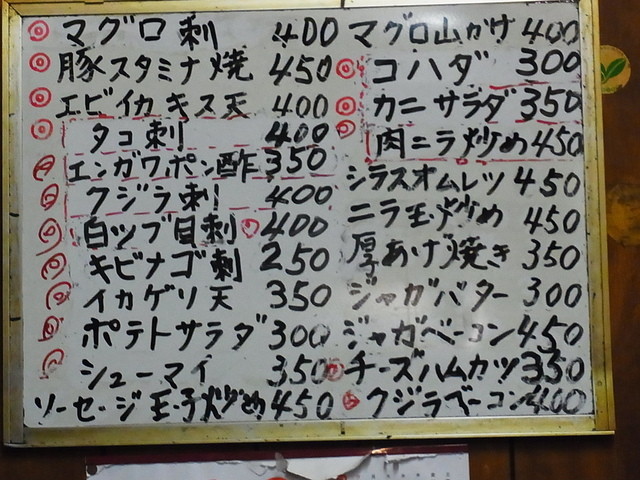 マグロ刺 400
豚スタミナ焼 450
エビイカキス天 400
タコ刺 400
エンガワポン酢 350
クジラ刺 400
白ツブ貝刺 400
キビナゴ刺 250
イカゲソ天 350
ポテトサラダ 300
シューマイ 350
ソーセージ玉子炒め 450
マグロ山かけ 400
コハダ 300
カニサラダ 350
肉ニラ炒め 450
シラスオムレツ 450
ニラ玉炒め 450
厚あげ焼き 350
ジャガバター 300
ジャガベーコン 450
チーズハムカツ 350
クジラベーコン 400